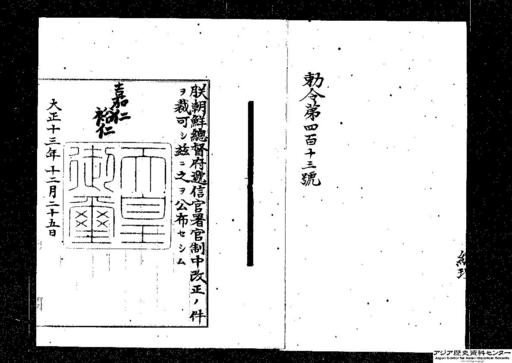 勅令第四百十三號
朕朝鮮總督府遞信官署官制中改正ノ件
ヲ裁可シ茲ニ之ヲ公布セシム
嘉仁
裕仁
天皇御璽
大正十三年十二月二十五日
アジア歴史資料センター
Japan Center for Asian Historical Records